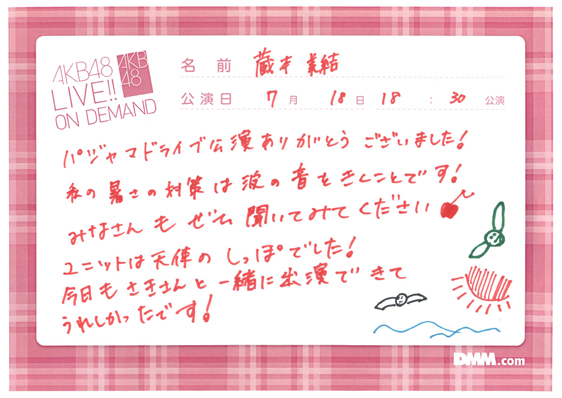 AKB48
LIVE!!
ON DEMAND
AKB
48
名前 蔵本 美結
公演日 7月 18日 18:30 公演
パジャマドライブ公演ありがとうございました!
私の暑さの対策は波の音をきくことです!
みなさんもぜひ聞いてみてください
ユニットは天使のしっぽでした!
今日もさきさんと一緒に出演できて
うれしかったです!
DMM.com